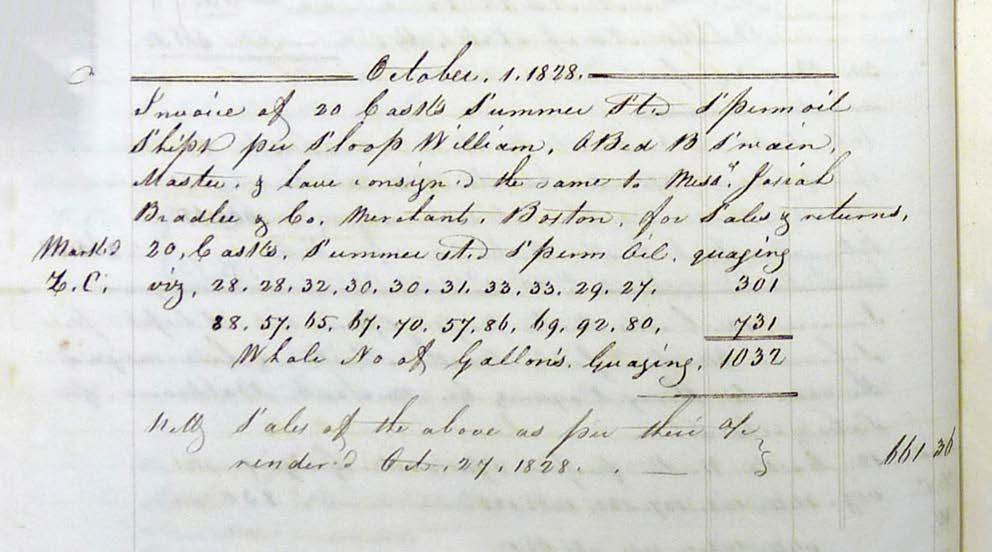 October. 1. 1828.
Invoice of 20 Casks Summer Std Sperm oil
Shipt per Sloop William, OBed B Swain,
Master, & have consign'd the same to Messrs. Josiah
Bradlee & Co. Merchant. Boston, for Sales & returns,
Mark'd 20, Casks, Summer Std Sperm Oil. guaging
Z. C. viz, 28. 28. 32. 30. 30. 31. 33. 33. 29. 27. 301
88. 57. 65. 67. 70. 57. 86. 69. 92. 80, 731
Whole No of Gallon's. Guaging. 1032
Nett Sales of the above as per their a/c
render'd Oct. 27. 1828. 661 36